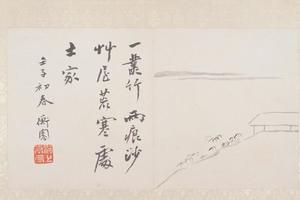 一叢竹雨痕沙
艸屋荒寒處
士家
壬子初春衡園